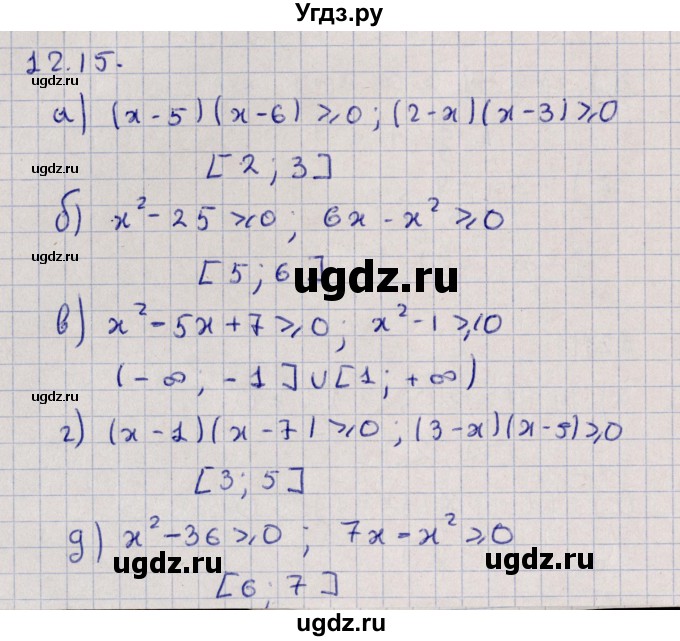 Угдз.ру
12.15.
ugdz.ru
а) (x-5)(x-6)⩾0; (2-x)(x-3)⩾0
ugdz.ru
[2; 3]
б) x²-25⩾0; 6x-x²⩾0
ugdz.ru
[5; 6]
ugdz.ru
в) x²-5x+7⩾0; x²-1⩾0
ugdz.ru
(-∞; -1]∪[1; +∞)
ugdz.ru
г) (x-1)(x-7)⩾0; (3-x)(x-5)⩾0
[3; 5]
д) x²-36⩾0; 7x-x²⩾0
ugdz.ru ugdz.ru
[6; 7]
ugdz.ru